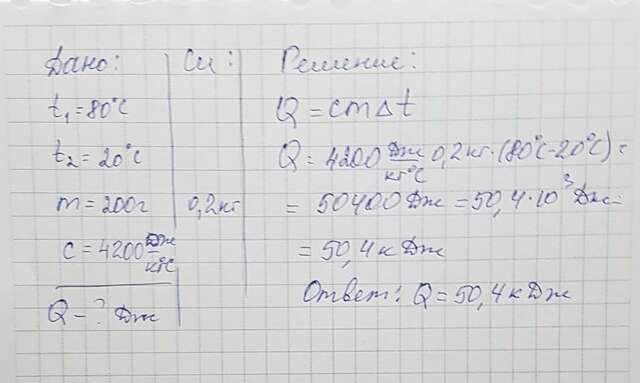 Дано:
t₁=80°C
t₂=20°C
m=200г
c=4200 Дж/кг°C
Q-? Дж
Си:
0,2кг
Решение:
Q=cm∆t
Q=4200 Дж/кг°C 0,2кг·(80°C-20°C)=
=50400Дж=50,4·10³Дж=
=50,4кДж
Ответ: Q=50,4кДж